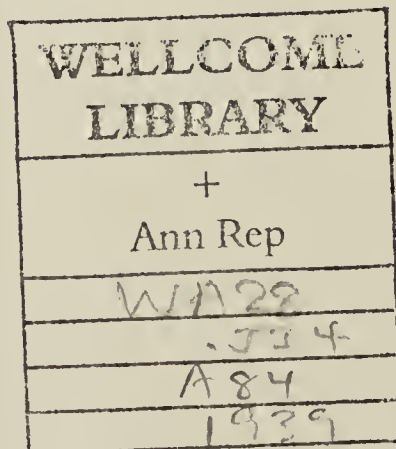 WELLCOME
LIBRARY
+
Ann Rep
WA28
.JJ4
A84
1929